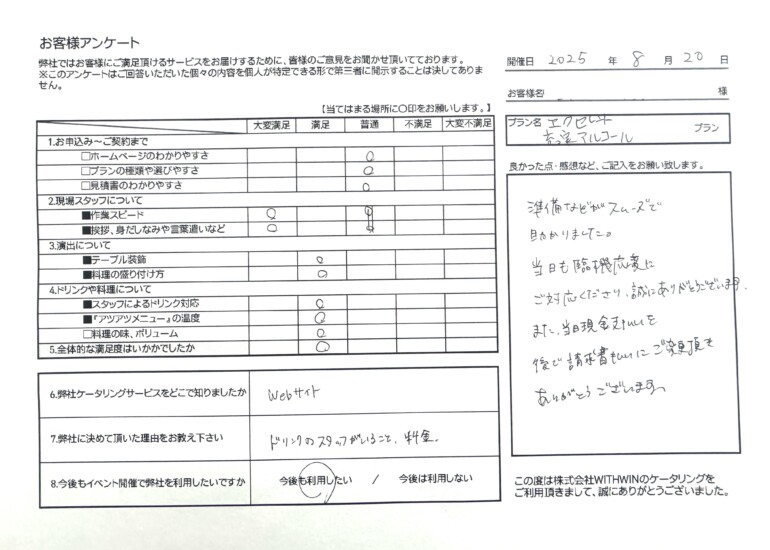 お客様アンケート
弊社ではお客様にご満足頂けるサービスをお届けするために、皆様のご意見をお聞かせ頂いております。
※このアンケートはご回答いただいた個々の内容を個人が特定できる形で第三者に開示することは決してありま
せん。
【当てはまる場所に〇印をお願いします。】
大変満足 満足 普通 不満足 大変不満足
1.お申込み～ご契約まで
□ホームページのわかりやすさ ○
□プランの種類や選びやすさ ○
□見積書のわかりやすさ ○
2.現場スタッフについて
■作業スピード ○
■挨拶、身だしなみや言葉遣いなど ○
3.演出について
■テーブル装飾 ○
■料理の盛り付け方 ○
4.ドリンクや料理について
■スタッフによるドリンク対応 ○
■『アツアツメニュー』の温度 ○
□料理の味、ボリューム ○
5.全体的な満足度はいかがでしたか ○
6.弊社ケータリングサービスをどこで知りましたか Webサイト
7.弊社に決めて頂いた理由をお教え下さい ドリンクのスタッフがいること、料金。
8.今後もイベント開催で弊社を利用したいですか 今後も利用したい / 今後は利用しない
開催日 2025 年 8 月 20 日
お客様名 様
プラン名 エクセレント
アルコール プラン
良かった点・感想など、ご記入をお願い致します。
準備などがスムーズで
助かりました。
当日も臨機応変に
ご対応くださり、誠にありがとうございます。
また、当日現金支払いを
後で請求書払いにご変更頂き
ありがとうございます。
この度は株式会社WITHWINのケータリングを
ご利用頂きまして、誠にありがとうございました。